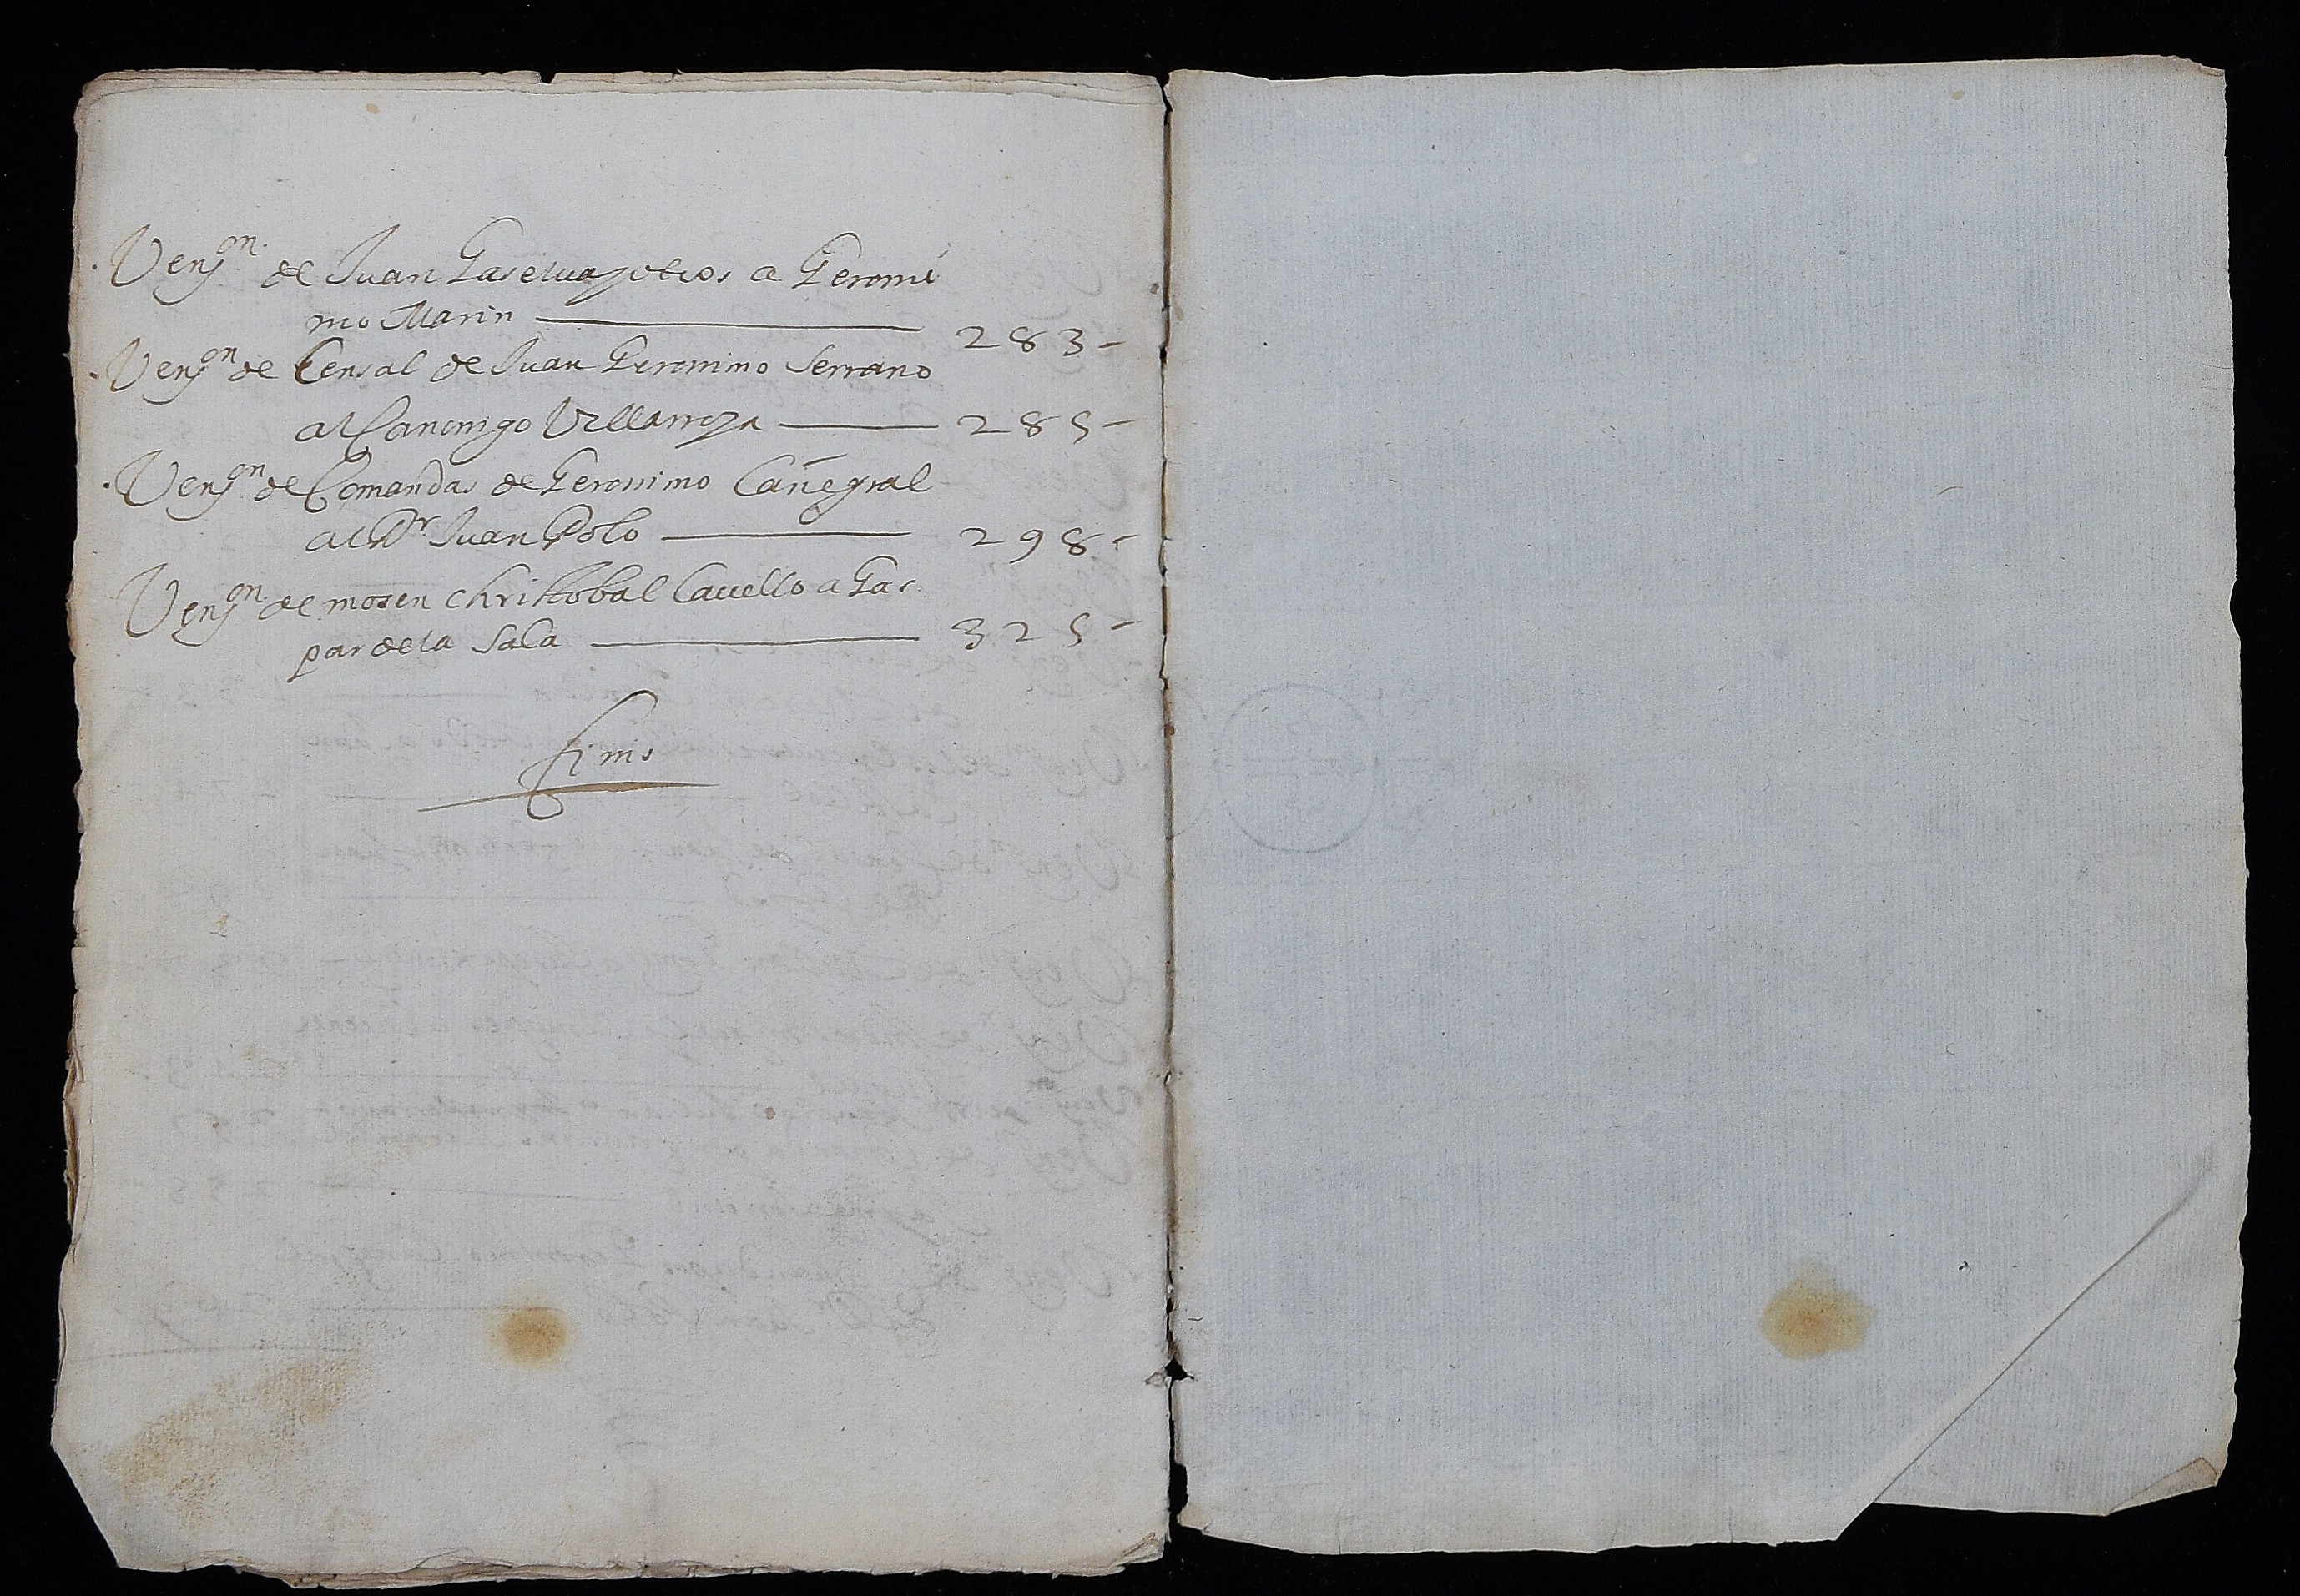 Vens.on de Juan Gaselua y otros a Geroni
mo Marin 283-
Vens.on de Censal de Juan Geronimo Serrano
al Canonigo Villarroya 285-
Vens.on de Comandas de Geronimo Cañegral
al D.r Juan Polo 298-
Vens.on de mosen Christobal Cauello a Gas
par de la Sala 325-
finis